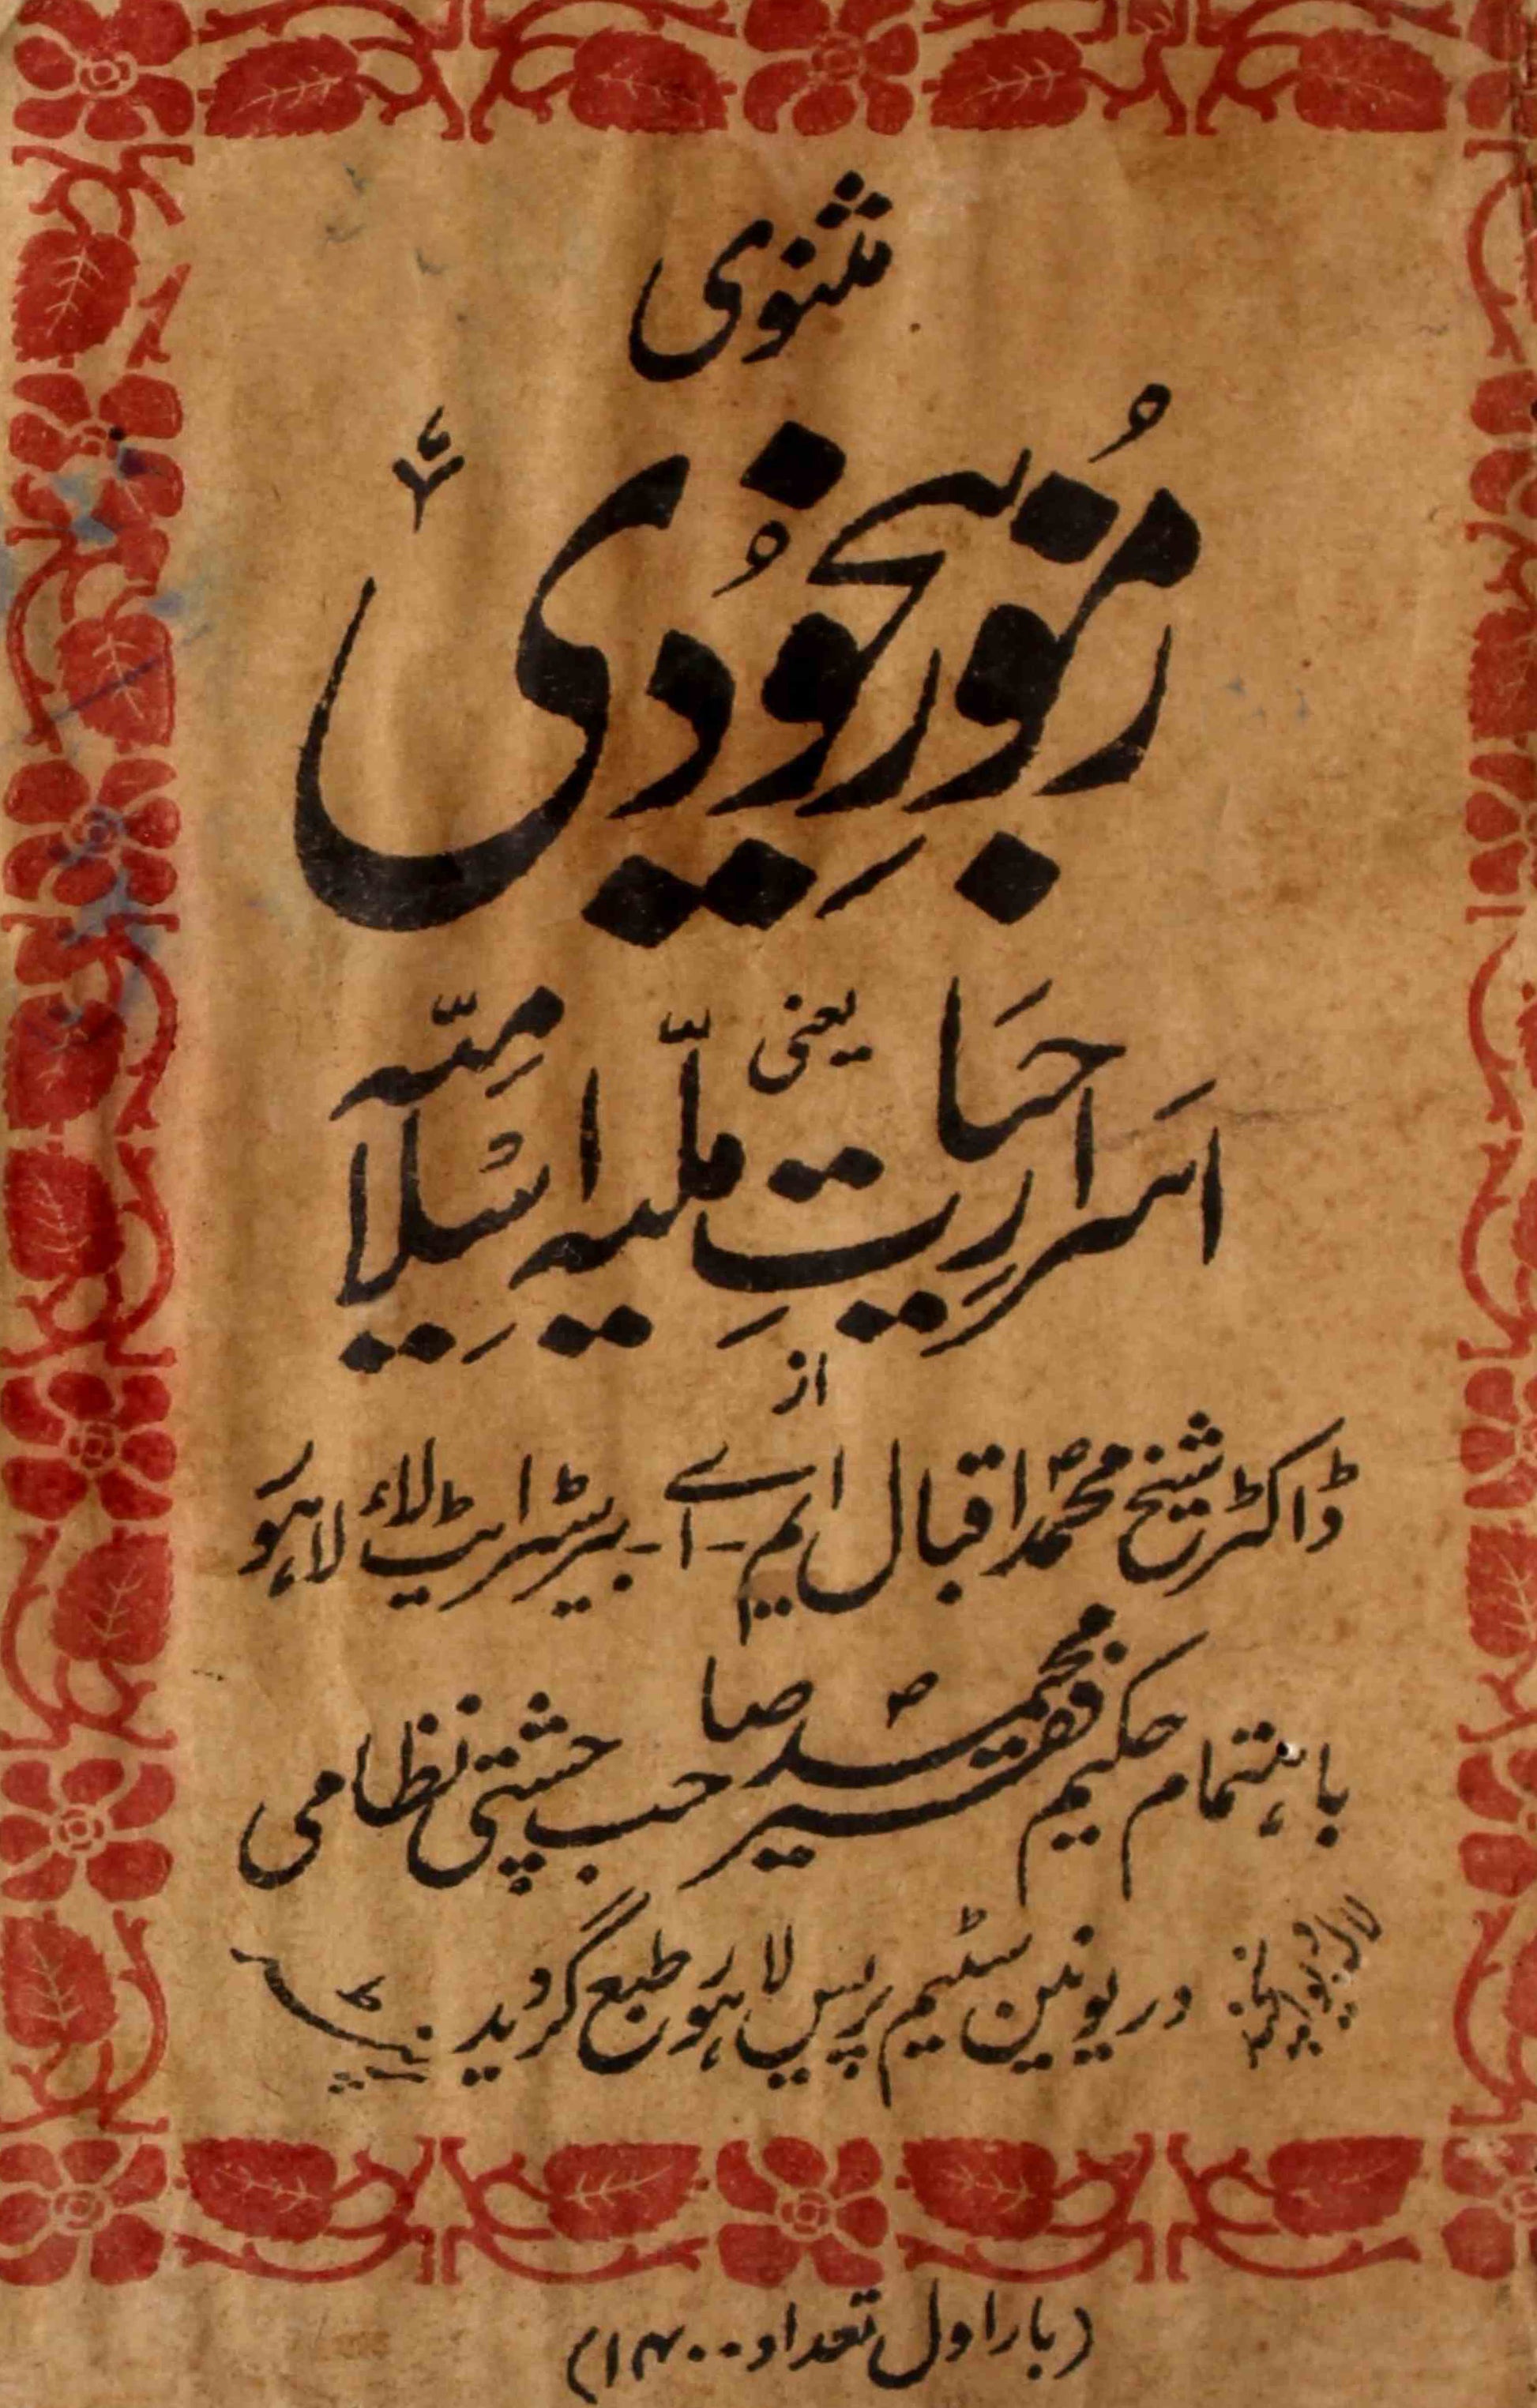 مثنوی
رُموزِ بیخُودی
یعنی
اسَرارِ حیَاتِ ملّیہ اِسْلامِیّہ
از
ڈاکٹر شیخ محمدؐ اقبال ایم ۔ اے ۔ بیرسٹر ایٹ لاء لاہور
باہتمام حکیم فقیر محمدؐ صاحب چشتی نظامی
در یونین سٹیم پریس لاہور طبع گردید
(بار اول تعداد ۱۴۰۰)